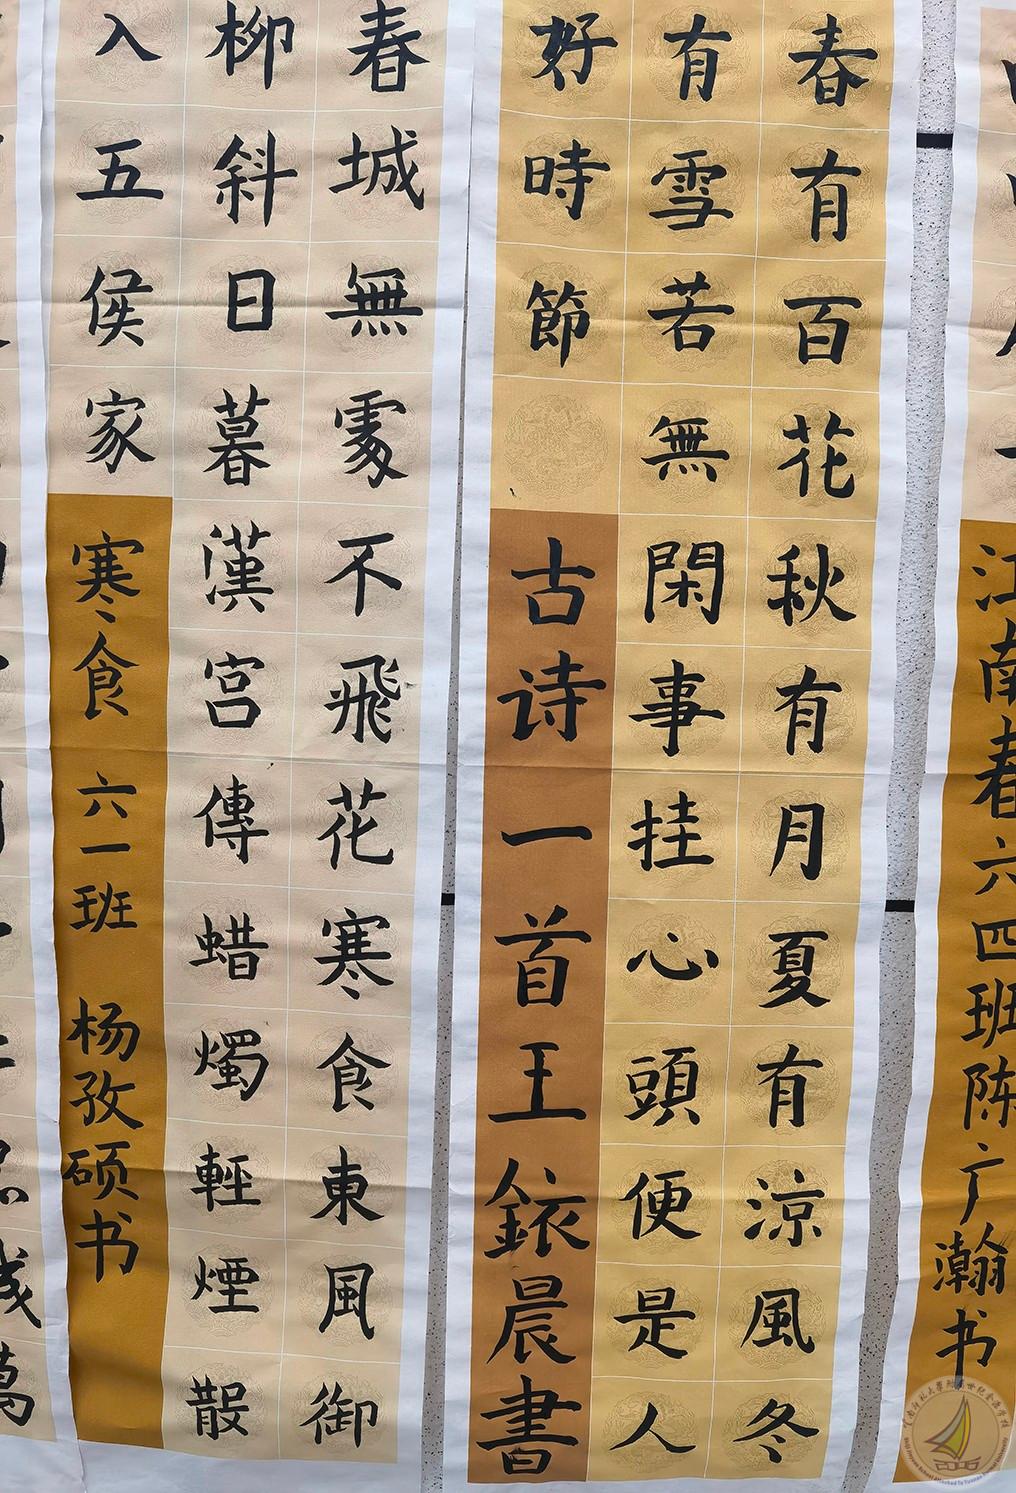 江南春六四班陈广瀚书
春有百花秋有月夏有涼風冬
有雪若無閑事挂心頭便是人
好時節
古诗一首王銥晨書
春城無處不飛花寒食東風御
柳斜日暮漢宫傳蜡燭輕煙散
入五侯家
寒食 六一班 杨孜硕书